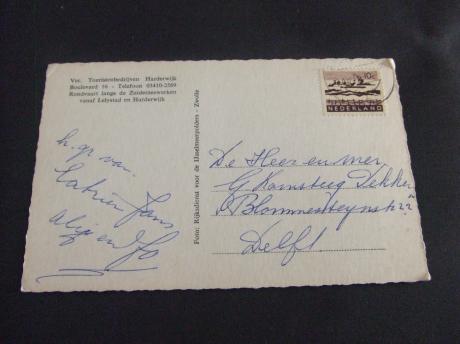 Ver. Toeristenbedrijven Harderwijk
Boulevard 16 - Telefoon 03410-2509
Rondvaart langs de Zuiderzeewerken
vanaf Lelystad en Harderwijk
Foto: Rijksdienst voor de IJsselmeerpolders - Zwolle
10c
NEDERLAND
h. gr van.
Catrien Jans
en Jo
De Heer en mevr
G Dekker
Delft.